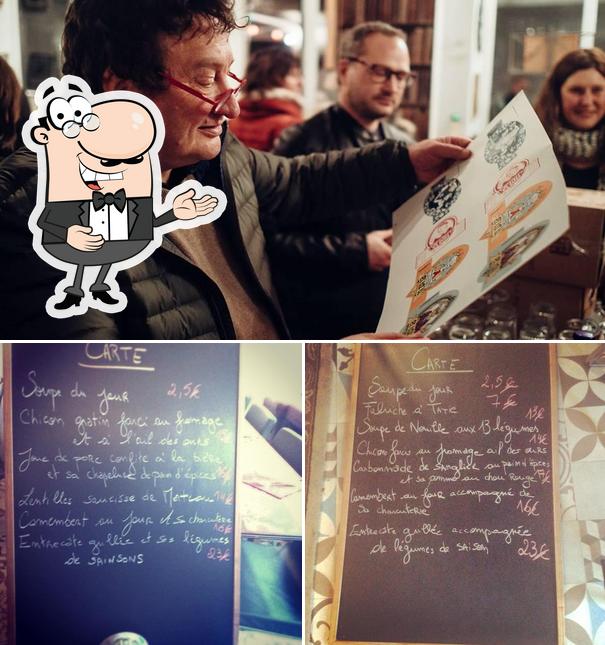 CARTE
Soupe du jour 2,5€
Chicon gratin farci au fromage
et à l'ail des ours
Joue de porc confite à la bière
et sa chapelure de pain d'épices
Lentilles saucisse de
Camembert au four et sa charcuterie
Entrecôte grillée et ses légumes
de SAINSONS 23€
CARTE
Soupe du jour 2,5€
à 7€
Soupe de aux 13 légumes 13€
Chicon farci au fromage ail des ours
Carbonnade de sanglier au pain d'épices
et sa pomme au chou Rouge
Camembert au four accompagné de
Sa charcuterie 16€
Entrecôte grillée accompagnée
de légumes de SAISON 23€